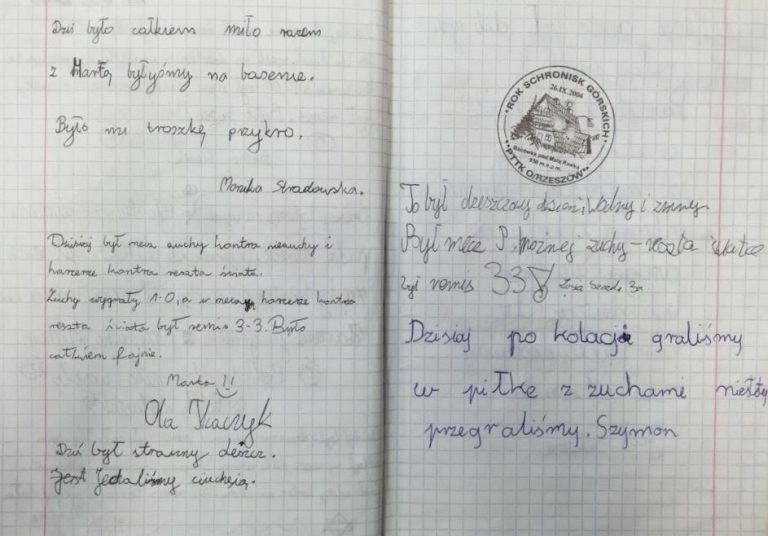 Dziś było całkiem miło razem
z Martą byłyśmy na basenie.
Było mi troszkę przykro.
Monika Stradowska.
Dzisiaj był mecz zuchy kontra niezuchy i
harcerze kontra reszta świata.
Zuchy wygrały 1-0, a w meczu harcerze kontra
reszta świata był remis 3-3. Było
całkiem fajnie.
Marta !!
Ola Tkaczyk
Dziś był straszny deszcz.
Jest Jechaliśmy ciuchcią.
ROK SCHRONISK GÓRSKICH
26.IX.2004
Bacówka pod Małą Rawką
930 m n.p.m.
PTTK O/RZESZÓW
To był dzeszczowy dzień, Wodny i zimny.
Był mecz P. nożnej zuchy - reszta świata
był remis 33
Dzisiaj po kolacji graliśmy
w piłkę z zuchame niełóy
przegraliśmy. Szymon